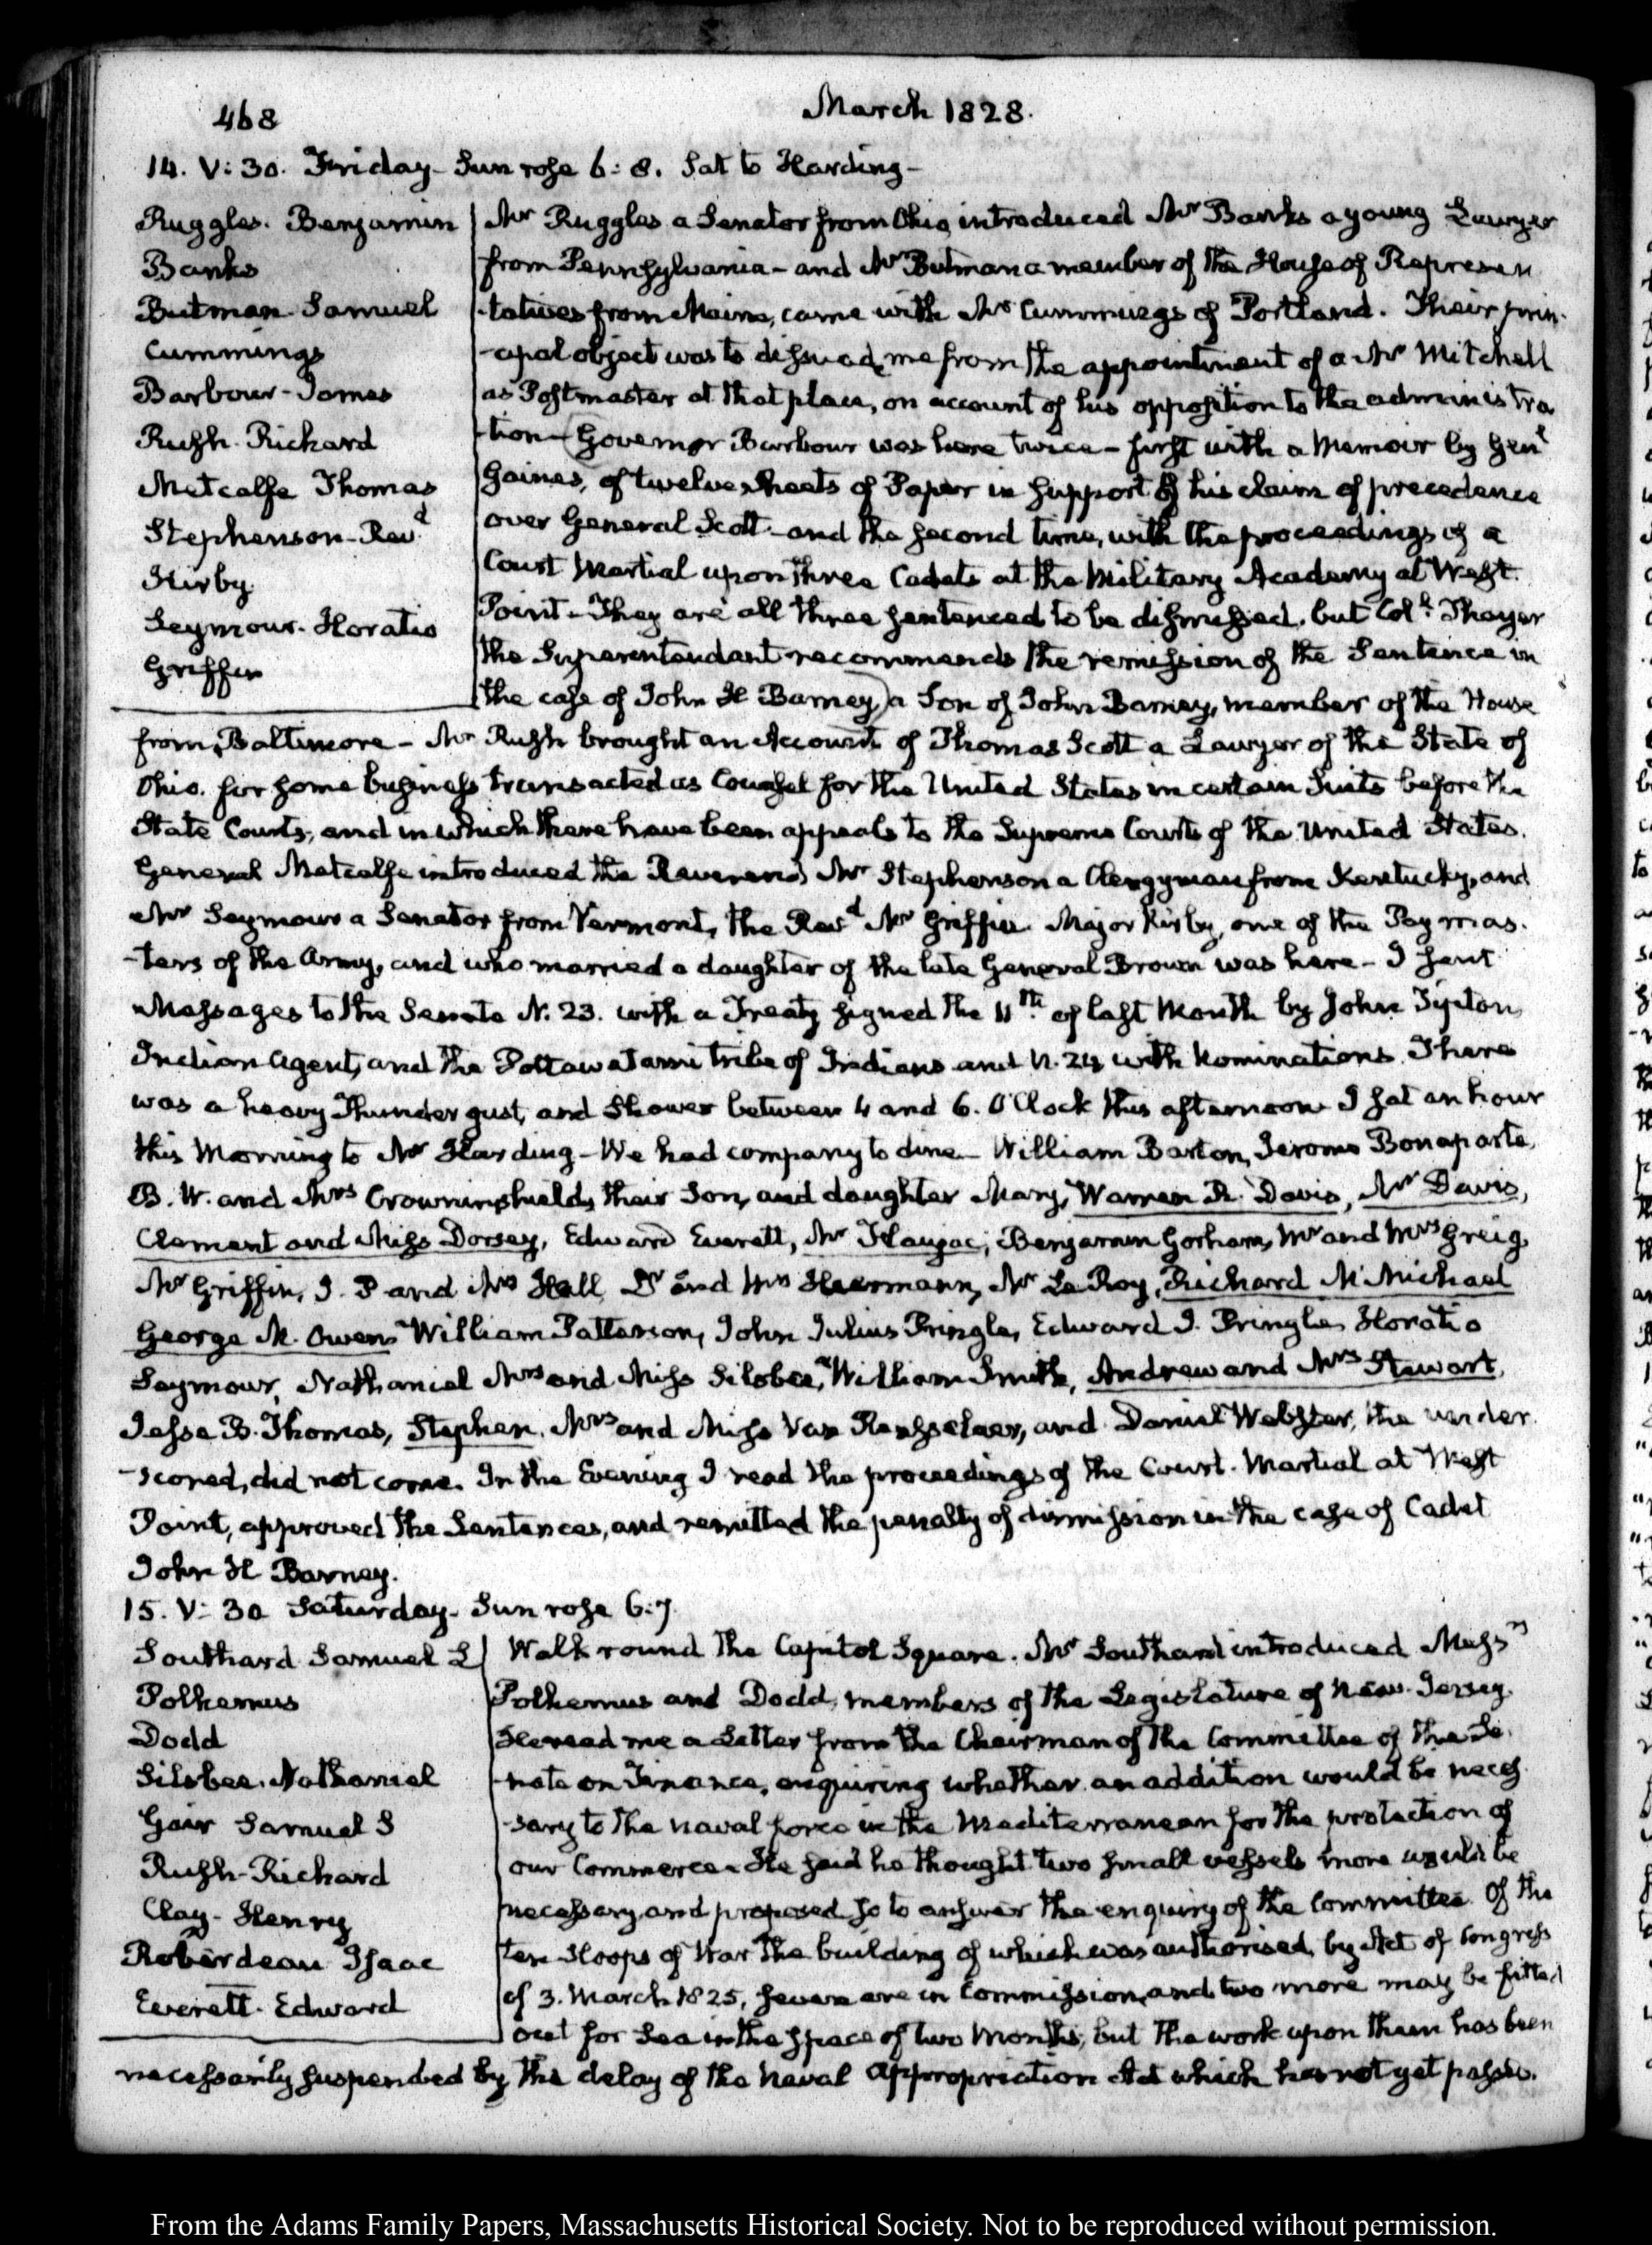 468
March 1828.
14. V: 30. Friday - Sun rose 6: 8. Sat to Harding -
Ruggles. Benjamin
Banks
Butman Samuel
Cummings
Barbour - James
Rush. Richard
Metcalfe Thomas
Stephenson - Revd
Kirby
Seymour. Horatio
Griffin
Mr Ruggles a Senator from Ohio introduced Mr Banks a young Lawyer
from Pennsylvania - and Mr Butman a member of the House of Represen
-tatives from Maine, came with Mr Cummings of Portland. Their prin-
-cipal object was to dissuade me from the appointment of a Mr Mitchell
as Postmaster at that place, on account of his opposition to the administra
-tion - Governor Barbour was here twice - first with a Memoir by Genl
Gaines, of twelve sheets of Paper in support of his claim of precedence
over General Scott - and the second time, with the proceedings of a
Court Martial upon three Cadets at the Military Academy at West.
Point - They are all three sentenced to be dismissed, but Coll Thayer
the Superintendant recommends the remission of the Sentence in
the case of John H Barney) a Son of John Barney, member of the House
from Baltimore - Mr Rush brought an Account of Thomas Scott a Lawyer of the State of
Ohio. for some business transacted as Counsel for the United States in certain Suits before the
State Courts, and in which there have been appeals to the Supreme Courts of the United States.
General Metcalfe introduced the Reverend Mr Stephenson a Clergyman from Kentucky, and
Mr Seymour a Senator from Vermont, the Revd Mr Griffin. Major Kirby, one of the Paymas-
-ters of the Army, and who married a daughter of the late General Brown was here - I sent
Messages to the Senate N. 23. with a Treaty signed the 11th of last Month by John Tipton
Indian Agent, and the Pottawatami tribe of Indians and N. 24 with Nominations. There
was a heavy Thunder gust, and Shower between 4 and 6. O'Clock this afternoon I sat an hour
this Morning to Mr Harding - We had company to dine - William Barton, Jerome Bonaparte,
B. W. and Mrs Crowninshield, their Son, and daughter Mary, Warren R. Davis, Mr Davis,
Clement and Miss Dorsey, Edward Everett, Mr Flaugac, Benjamin Gorham, Mr and Mrs Greig,
Mr Griffin, J. P and Mrs Hall Dr and Mrs Heermann, Mr Le Roy, Richard McMichael
George M. Owens William Patterson, John Julius Pringle, Edward J. Pringle Horatio
Seymour, Nathaniel Mrs and Miss Silsbee, William Smith, Andrew and Mrs Stewart,
Jesse B. Thomas, Stephen, Mrs and Miss Van Rensselaer, and Daniel Webster, the under
-scored, did not come. In the Evening I read the proceedings of the Court. Martial at West
Point, approved the Sentences, and remitted the penalty of dismission in the case of Cadet
John H Barney.
15. V: 30 Saturday - Sun rose 6:7
Southard Samuel L
Polhemus
Dodd
Silsbee. Nathaniel
Gair Samuel S
Rush - Richard
Clay - Henry
Roberdeau Isaac
Everett. Edward
Walk round the Capitol Square. Mr Southard introduced Messrs
Polhemus and Dodd, members of the Legislature of New-Jersey.
He read me a Letter from the Chairman of the Committee of the Se-
-nate on Finance, enquiring whether an addition would be neces
-sary to the naval force in the Mediterranean for the protection of
our Commerce - He said he thought two small vessels more would be
necessary, and proposed so to answer the enquiry of the Committee. Of the
ten Sloops of War the building of which was authorised, by Act of Congress
of 3. March 1825, seven are in Commission, and two more may be fitted
out for Sea in the space of two Months, but the work upon them has been
necessarily suspended by the delay of the Naval Appropriation Act which has not yet passed.
From the Adams Family Papers, Massachusetts Historical Society. Not to be reproduced without permission.